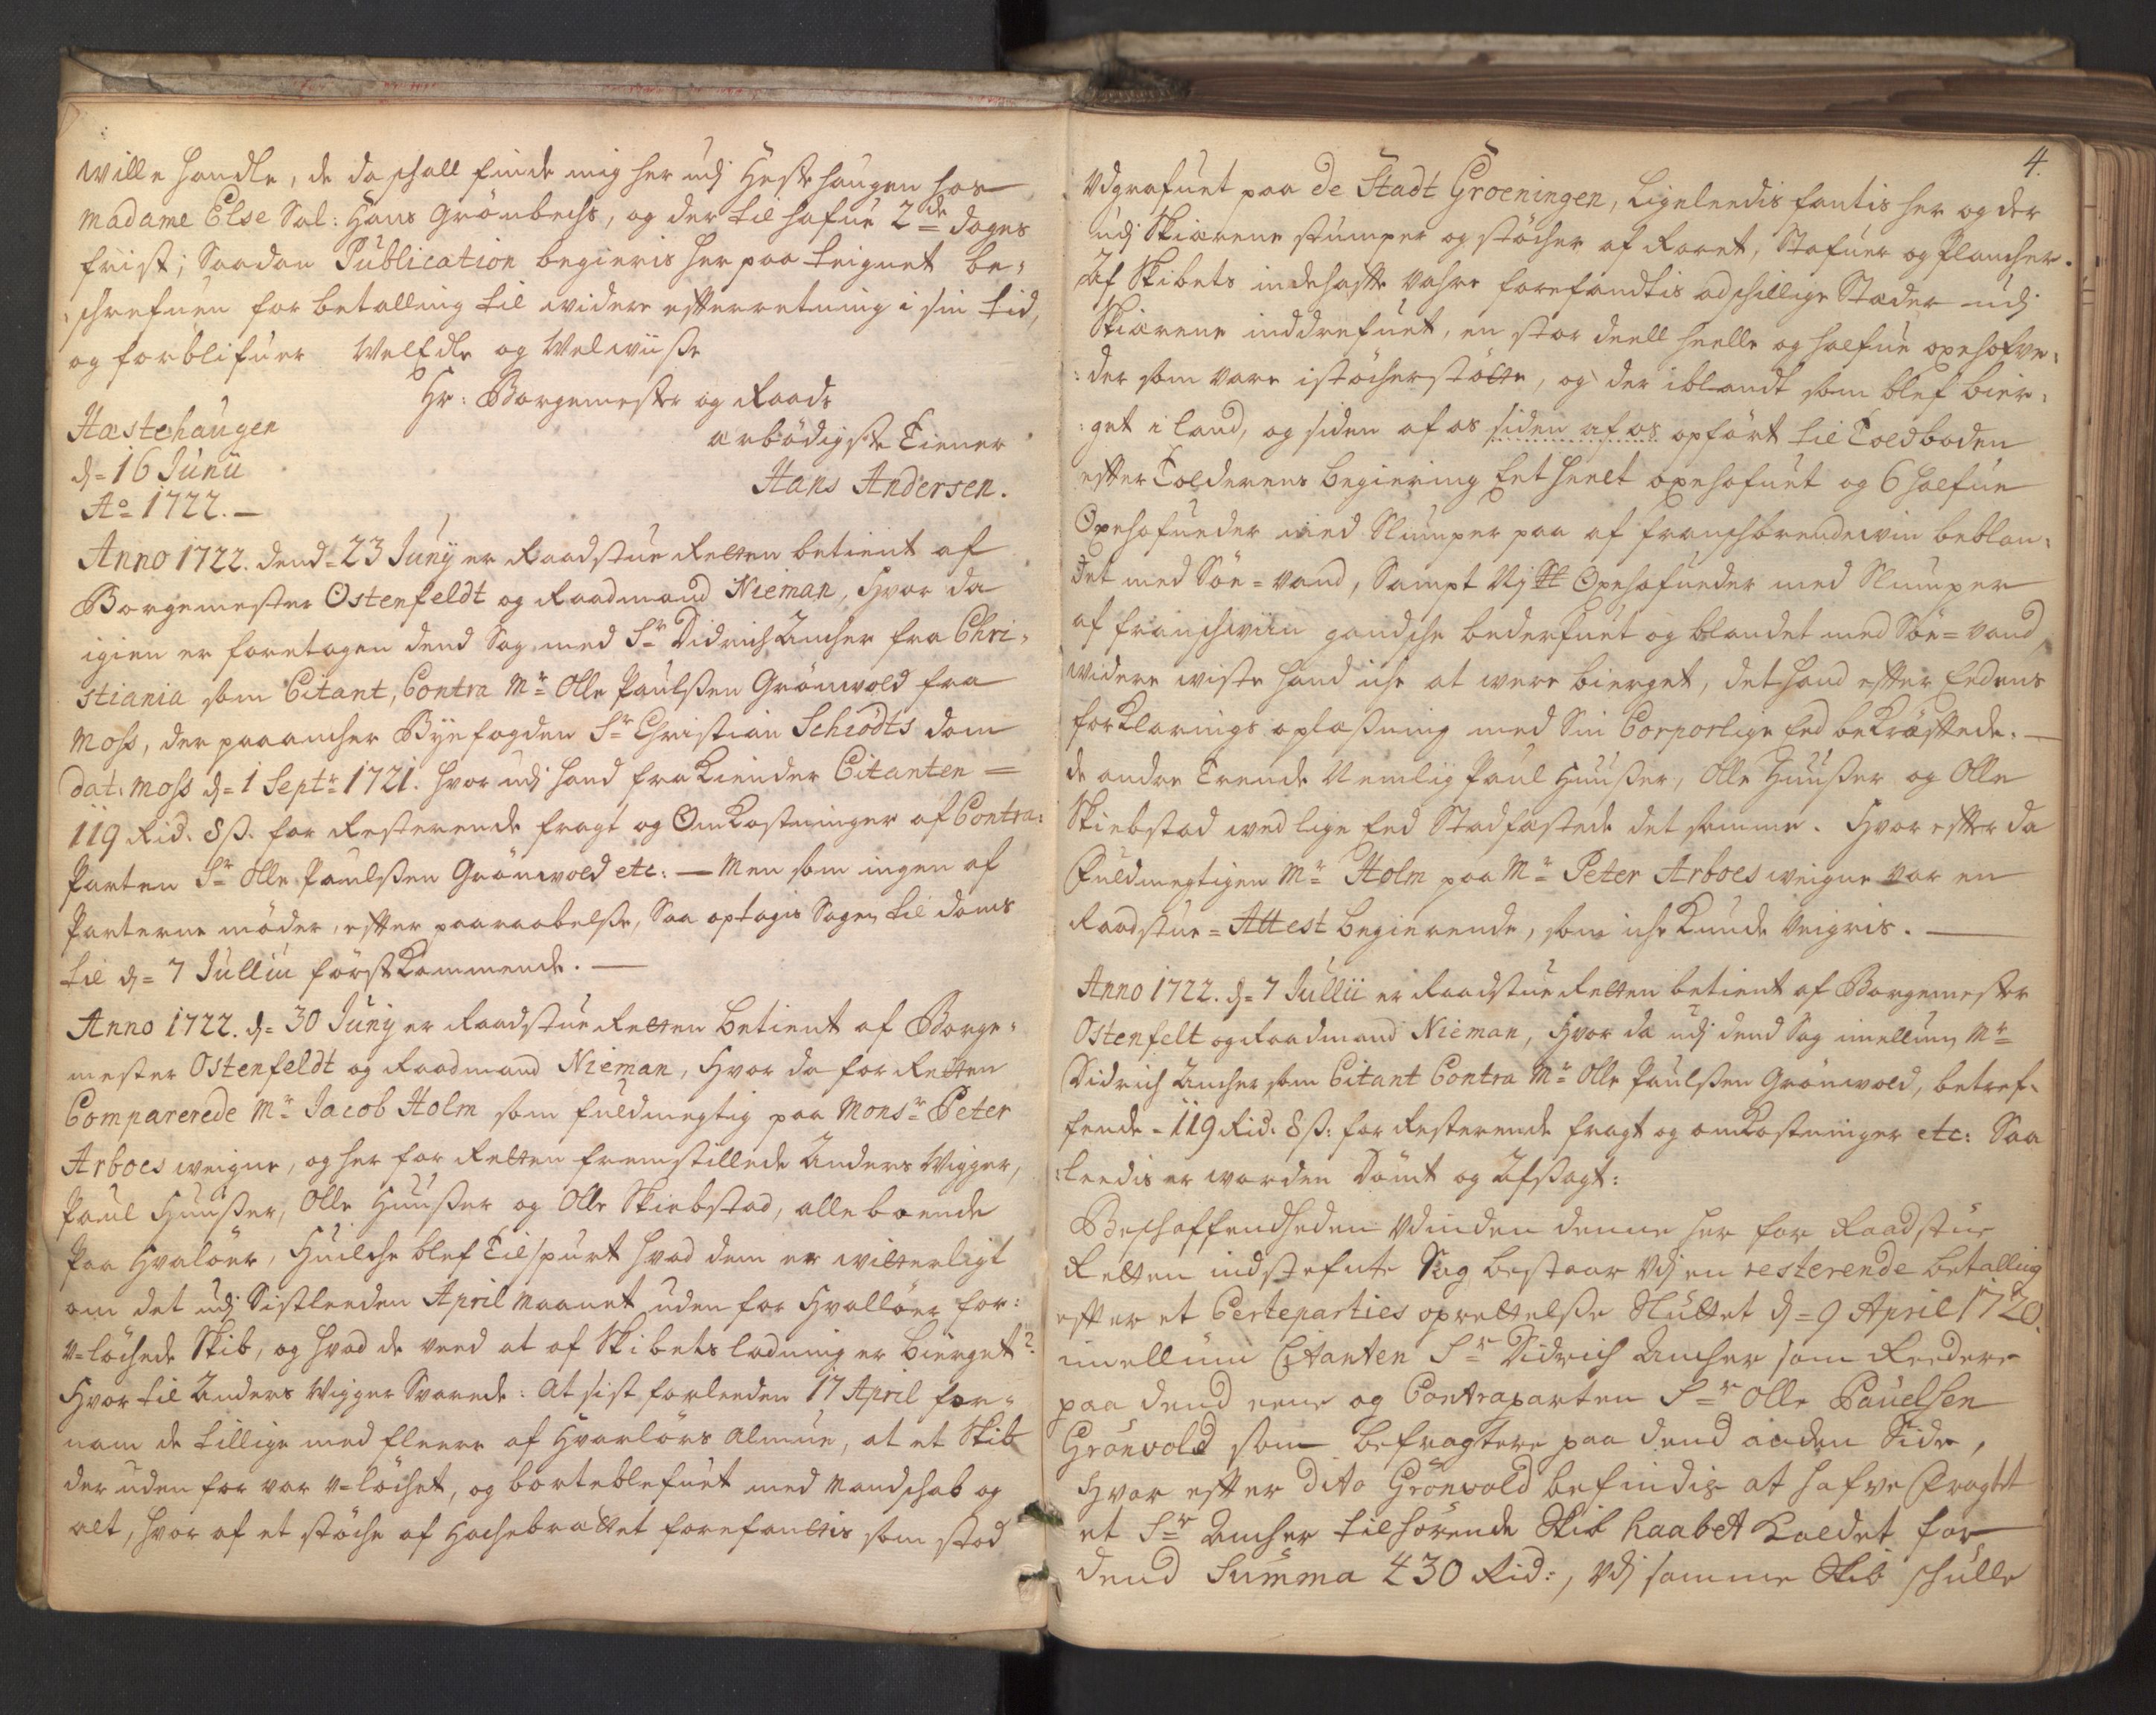 wille handle, de da schall finde mig her udj Hæste haugen hos
Madame Else Sal: Hans Grönbechs, og der til hafue 2de dages
frist; Saadan Publication begieris her paa teignet be,
,schrefuen for betalling til widere effterretning i sin tid,
og forblifuer WelEdle og Welwiise
Hr: Borgemester og Raads
Hæstehaugen
ærbödigste Tiener
d= 16 Junii
Hans Andersen.
Ao 1722. —
Anno 1722. dend= 23 Junÿ er Raadstue Retten betient af
Borgemester Ostenfeldt og Raadmand Nieman, Hvor da
igien er foretagen dend Sag med Sr Didrich Ancher fra Chri,
stiania som Citant, Contra Mr Olle Paulsen Grönwold fra
Moss, der paaancher Byefogden Sr Christian Schiödts dom
dat: Moss d= 1 Septr 1721. hvor udj hand frakiender Citanten =
119 Rid. 8 ß. for Resterende fragt og Omkostninger af Contra:
Parten Sr Olle Paulsen Grönwold etc: — Men som ingen af
Parterne möder, effter paaraabelse, Saa optagis Sagen til doms
til d= 7 Jullii förstkommende. —
Anno 1722. d= 30 Junÿ er Raadstue Retten betient af Borge,
mester Ostenfeldt og Raadmand Nieman, Hvor da for Retten
Comparerede Mr Jacob Holm som fuldmegtig paa Monsr Peter
Arboes weigne, og her for Retten fremstillede Anders Wigger,
Paul Huuser, Olle Huuser og Olle Skiebstad, alle boende
Paa Hvalöer, Huilche blef Tilspurt hvad dem er witterligt
om det udj Sistleeden April Maanet uden for Hvallöer for:
v=löchede Skib, og hvad de veed at af Skibets ladning er bierget?
Hvor til Anders Wigger Svarede: At sist forleeden 17 April for,
nam de tillige med fleere af Hvarlörs Almue, at et Skib
der uden for var v=löchet, og borteblefuet med Mandschab og
alt, hvor af et stöche af Hachebrættet forefantis som stod
4.
Udgrafuet paa de Stadt Groeningen, Ligeleedis fantis her og der
udj Skiærene stumper og stöcher af Roret, Stafuer og Plancher.
Af Skibets indehaffte vahre forefandtis adschillige Stæder udj
Skiærene inddrefuet, en stor deell heelle og halfue oxehofve,
:der som vare istöcherstötte, og der iblandt som blef bier,
:get i land, og siden af os siden af os opfört til Toldboden
effter Tolderens begiering Et heelt oxehofuet og 6 halfue
Oxehofueder med Slumper paa af franschbrendewin beblan,
det med Söe=vand, Sampt Oxehofueder med Slumper
af franschwiin gandsche bederfuet og blandet med Söe=vand,
widere wiste hand iche at were bierget, det hand effter Eedens
forklarings oplæsning med Sin Corporlige Eed bekræfftede. —
de andre Trende Nemlig Paul Huuser, Olle Huuser og Olle
Skiebstad wed lige Eed Stadfæstede det samme. Hvor effter da
Fuldmegtigen Mr Holm paa Mr Peter Arboes weigne var en
Raadstue=Attest begierende, som iche kunde Veigris. —
Anno 1722. d= 7 Jullii er Raadstue Retten betient af Borgemester
Ostenfelt og Raadmand Nieman, Hvor da udj dend Sag imellum Mr
Didrich Ancher som Citant Contra Mr Olle Paulsen Grönwold, betref,
fende = 119 Rid: 8 ß: for Resterende fragt og omkostninger etc: Saa
:leedis er worden Dömt og Afsagt:
Beschaffendheden Vdinden denne her for Raadstue
Retten indstefnte Sag bestaar Vdj en resterende betalling
effter et Certeparties oprettelse Sluttet d= 9 April 1720.
imellum Citanten Sr Didrich Ancher som Reedere
paa dend eene og Contraparten Sr Olle Pauelsen
Grönvold som befragtere paa dend anden Side,
Hvor effter dito Grönvold befindis at hafve Fragtet
et Sr Ancher tilhörende Skib haabet kaldet for
dend Summa 430 Rid:, Vdj samme Skib schulle